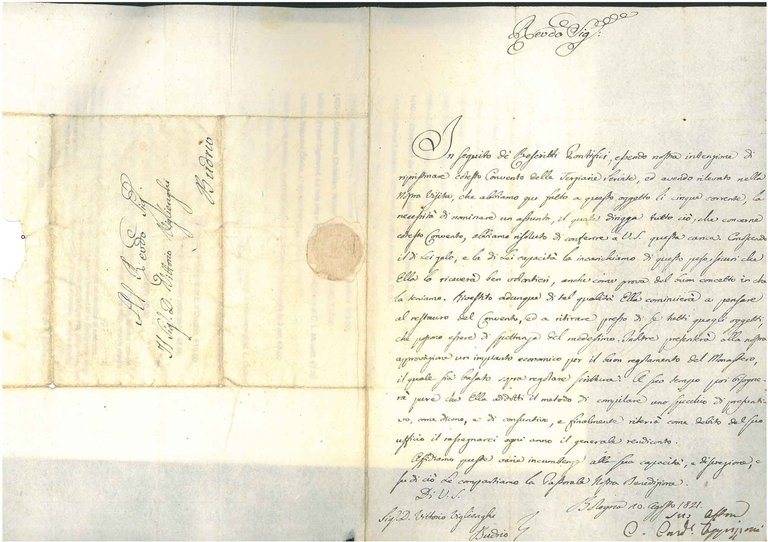 Al Revdo Sig.
Il Sig. D. Vittorio Viglienghi
Budrio
Revdo Sig.
In seguito de' Rescritti Pontificj, essendo nostra intenzione di
ripristinare cotesto Convento delle Terziarie Servite, ed avendo rilevato nella
Nostra Visita, che abbiamo qui fatto a questo oggetto li cinque corrente, la
necessità di nominare un assunto, il quale diriga tutto ciò, che concerne
cotesto Convento, abbiamo risoluto di conferire a V.S. questa carica. Conoscendo
il di Lei zelo, e la di Lei capacità la incarichiamo di questo peso, sicuri che
Ella lo riceverà ben volentieri, anche come prova del buon concetto in cui
la teniamo. Rivestito adunque di tal qualità Ella comincierà a pensare
al restauro del Convento, ed a ritirare presso di se tutti quegli oggetti,
che possono essere di spettanza del medesimo. Inoltre presenterà alla nostra
approvazione un impianto economico per il buon regolamento del Monastero,
il quale sia basato sopra regolare scrittura. A suo tempo poi bisogne-
rà pure che Ella adotti il metodo di compilare uno specchio di preventi-
vo, come dicono, e di consuntivo, e finalmente riterrà come debito del suo
ufficio il rassegnarci ogni anno il generale rendiconto.
Affidiamo queste varie incumbenze alla sua capacità, e discrezione, e
su di ciò Le compartiamo la Pastorale Nostra Benedizione.
Di V.S.
Bologna 10. Agosto 1821.
Sig. D. Vittorio Viglienghi
Budrio
C. Card. Oppizzoni